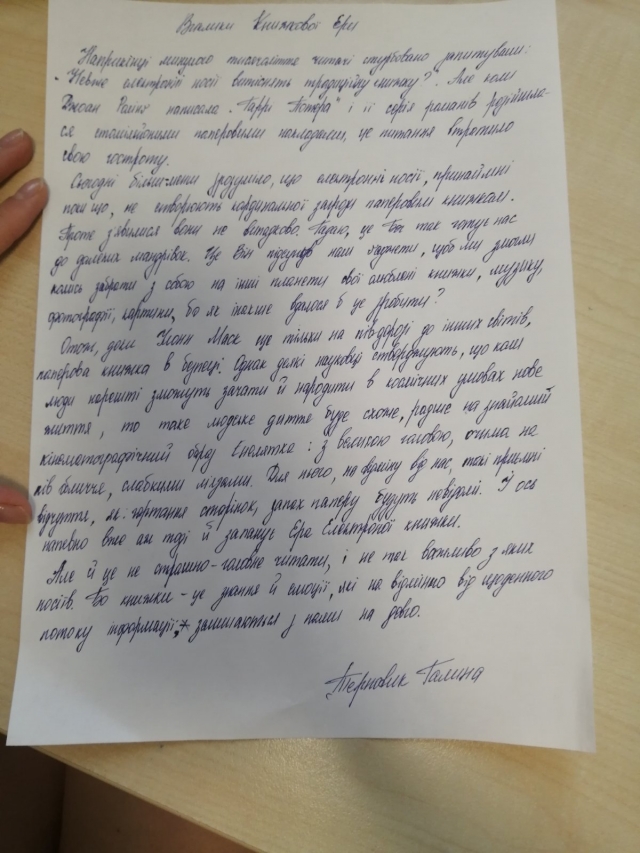 Виклики Книжкової Ери
Наприкінці минулого тисячоліття читачі стурбовано запитували:
"Невже електронні носії витіснять традиційну книжку?". Але коли
Джоан Роулінг написала "Гаррі Поттера" і її серія романів розійшла-
ся стомільйонними паперовими накладами, це питання втратило
свою гостроту.
Сьогодні більшменш зрозуміло, що електронні носії, принаймні
поки що, не створюють кардинальної загрози паперовим книжкам.
Проте з'явилися вони не випадково. Гадаю, це Бог так готує нас
до дальніх мандрівок. Це Він підсунув нам гаджети, щоб ми змогли
колись забрати з собою на інші планети свої улюблені книжки, музику,
фотографії, картини, бо як інакше вдалося б це зробити?
Отож, доки Ілон Маск ще тільки на півдорозі до інших світів,
паперова книжка в безпеці. Однак деякі науковці стверджують, що коли
люди нарешті зможуть зачати й народити в космічних умовах нове
життя, то таке людське дитя буде схоже, радше на знайомий
кінематографічний образ інопланетянина: з великою головою, очима на
пів обличчя, слабкими м'язами. Для нього, на відміну від нас, такі приємні
відчуття, як гортання сторінок, запах паперу будуть невідомі. І ось
напевно вже аж тоді й запанує Ера Електронної книжки.
Але й це не страшно - головне читати, і не так важливо з яких
носіїв. Бо книжки - це знання й емоції, які на відмінно від щоденного
потоку інформації, залишаються з нами на довго.
Терновик Галина